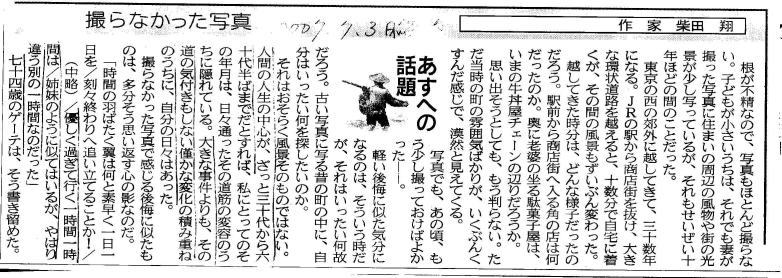 撮らなかった写真
作家 柴田 翔
根が不精なので、写真もほとんど撮らな
い。子どもが小さいうちは、それでも妻が
撮った写真に住まいの周辺の風物や街の光
景が少し写っているが、それもせいぜい十
年ほどの間のことだった。
東京の西の郊外に越してきて、三十数年
になる。JRの駅から商店街を抜け、大き
な環状道路を越えると、十数分で自宅に着
くが、その間の風景もずいぶん変わった。
越してきた時分は、どんな様子だったの
だろう。駅前から商店街へ入る角の店は何
だったのか。奥に老婆の坐る駄菓子屋は、
いまの牛丼屋チェーンの辺りだろうか。
思い出そうとしても、もう判らない。た
だ当時の町の雰囲気ばかりが、いくぶんく
すんだ感じで、漠然と見えてくる。
あすへの
話題
写真でも、あの頃、も
う少し撮っておけばよか
った――。
軽い後悔に似た気分に
なるのは、そういう時だ
が、それはいったい何故
だろう。古い写真に写る昔の町の中に、自
分はいったい何を探したいのか。
それはおそらく風景そのものではない。
人間の人生の中心が、ざっと三十代から六
十代半ばまでだとすれば、私にとってのそ
の年月は、日々通ったその道筋の変容のう
ちに隠れている。大きな事件よりも、その
道の気付きもしない僅かな変化の積み重ね
のうちに、自分の日々はあった。
撮らなかった写真で感じる後悔に似たも
のは、多分そう思い返す心の影なのだ。
「時間の羽ばたく翼は何と素早く/一日一
日を/刻々終わりへ追い立てることか!/
(中略)/優しく過ぎて行く一時間一時
間は/姉妹のように似てはいるが、やはり
違う別の一時間なのだった」
七十四歳のゲーテは、そう書き留めた。